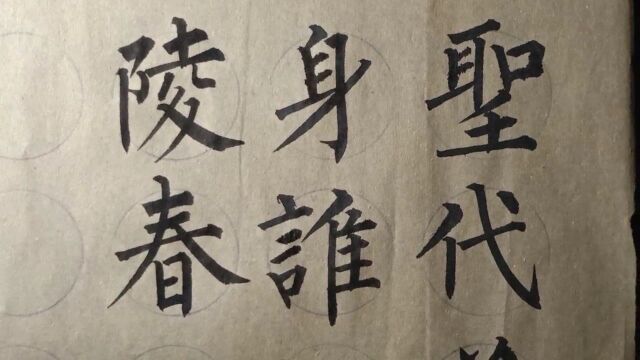 聖代
身誰
陵春